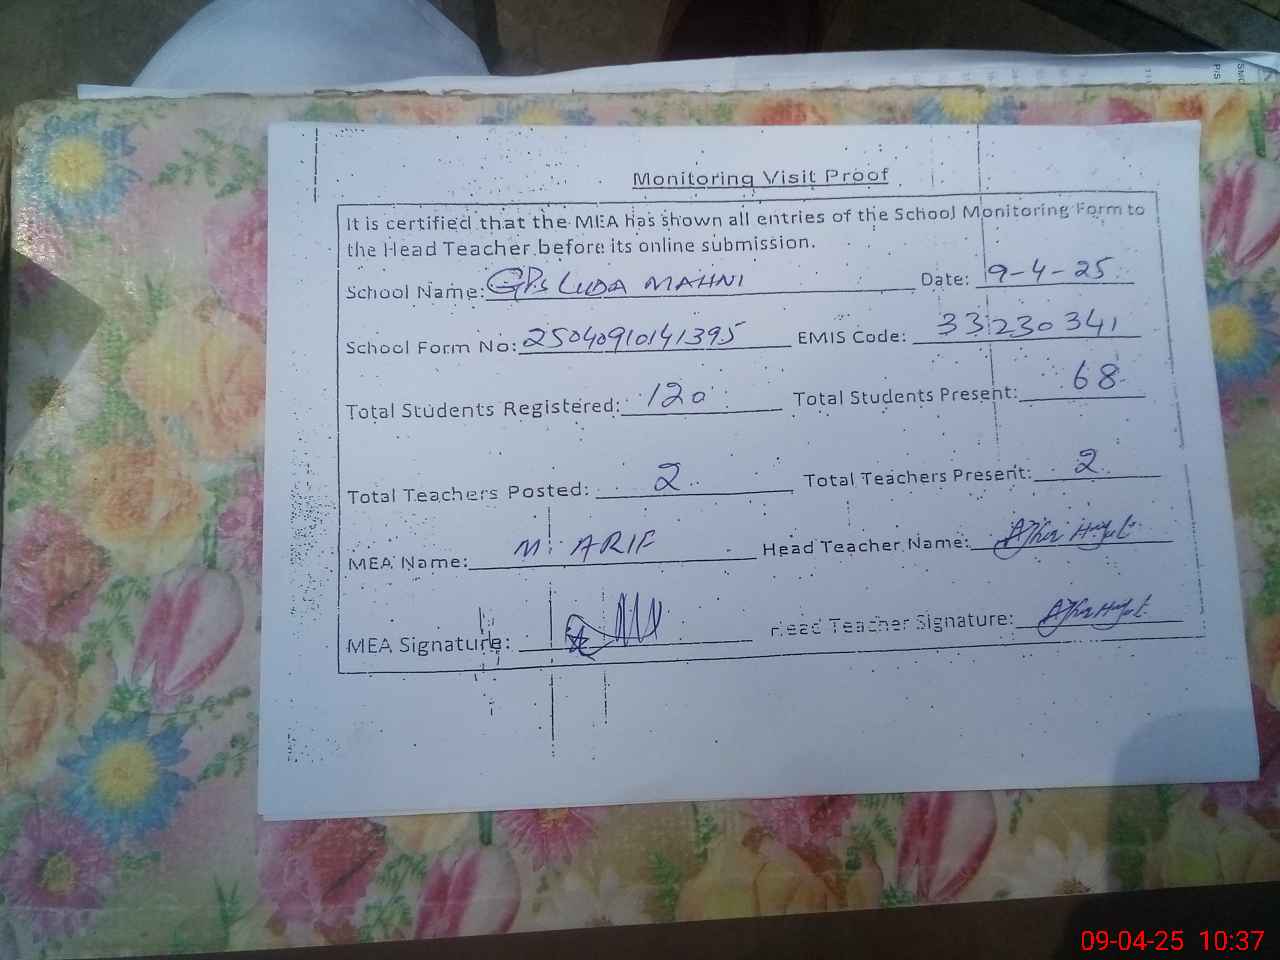 Monitoring Visit Proof
It is certified that the MEA has shown all entries of the School Monitoring Form to
the Head Teacher before its online submission.
School Name: GPS LUDA MAHNI Date: 9-4-25
School Form No: 25040910141395 EMIS Code: 33230341
Total Students Registered: 120 Total Students Present: 68
Total Teachers Posted: 2 Total Teachers Present: 2
MEA Name: M. ARIF Head Teacher Name:
MEA Signature: Head Teacher Signature:
09-04-25 10:37